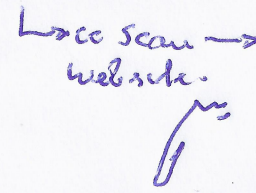 ↳ cc scan →
website.